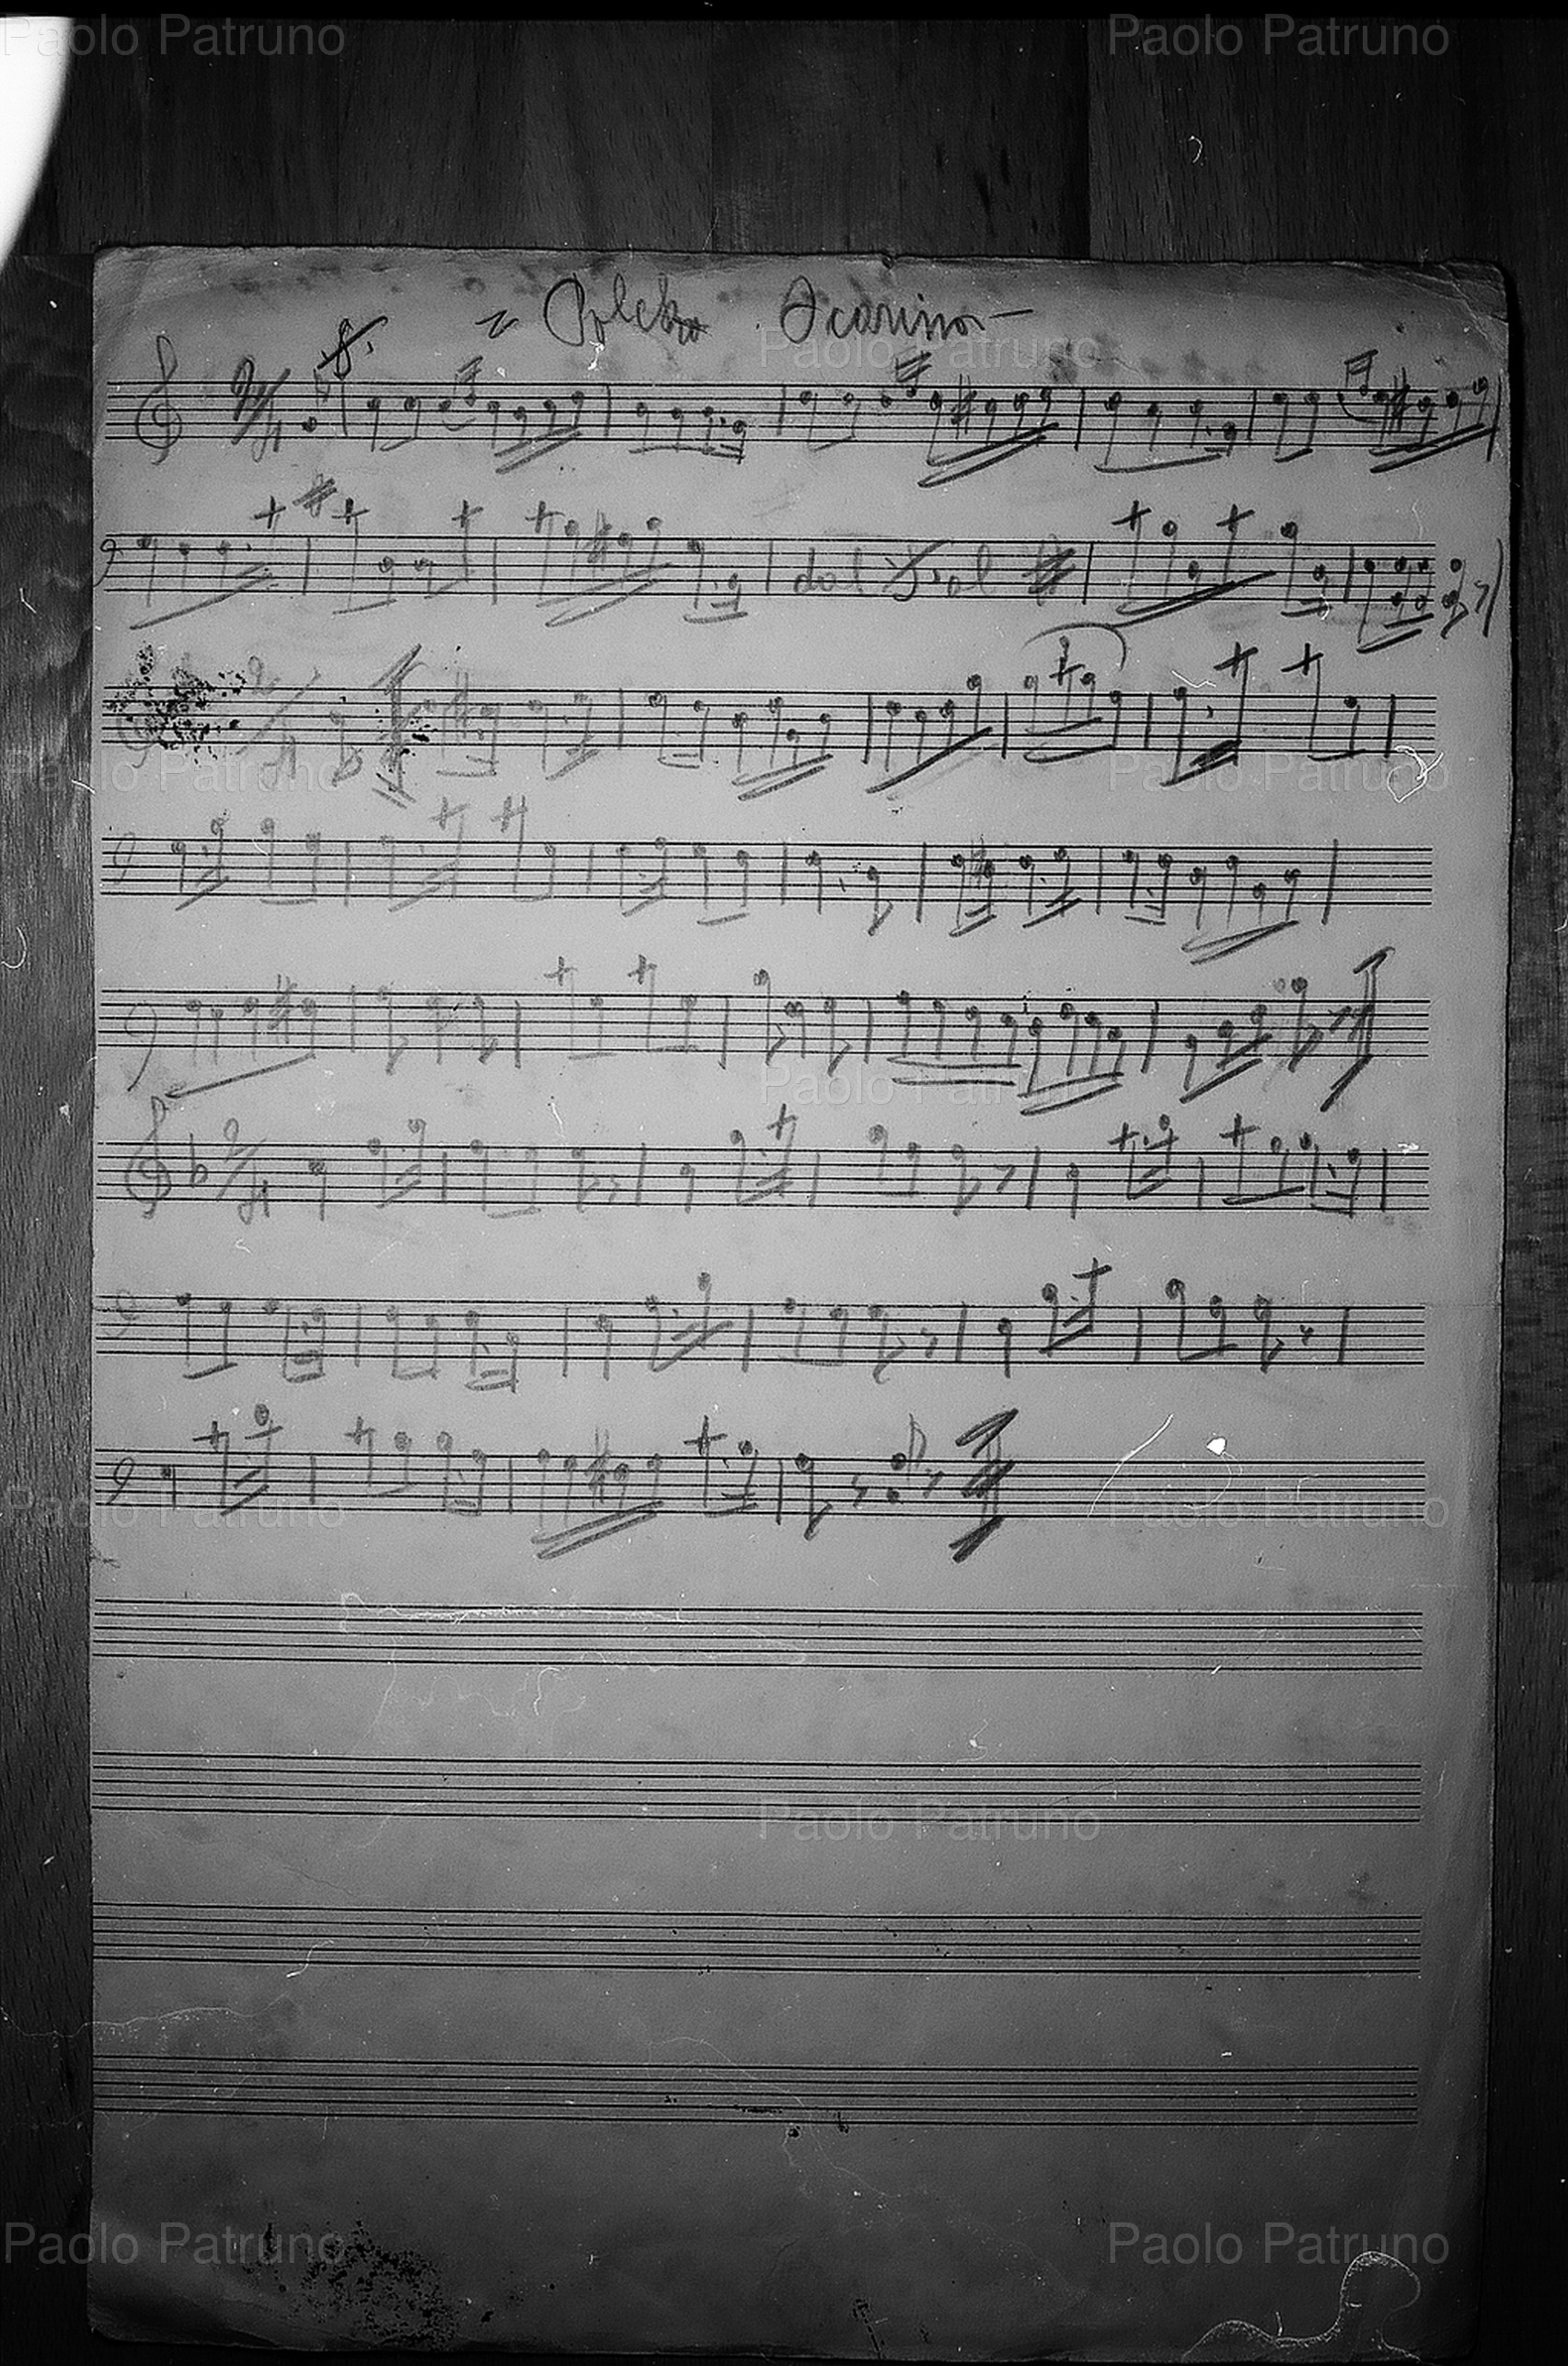 Paolo Patruno Paolo Patruno
Polcka Ocarina
Paolo Patruno
2/4
dal al
2/4
Paolo Patruno Paolo Patruno
Paolo Patruno
2/4
Paolo Patruno Paolo Patruno
Paolo Patruno
Paolo Patruno Paolo Patruno